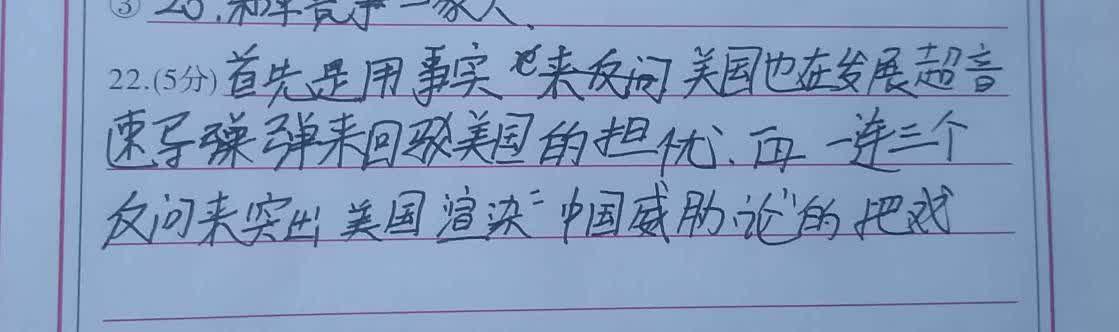 ③ 20.和军竞争一家人、
22.(5分)首先是用事实 来反问美国也在发展超音
速导弹弹来回驳美国的担忧、再一连三个
反问来突出美国渲染“中国威胁论”的把戏